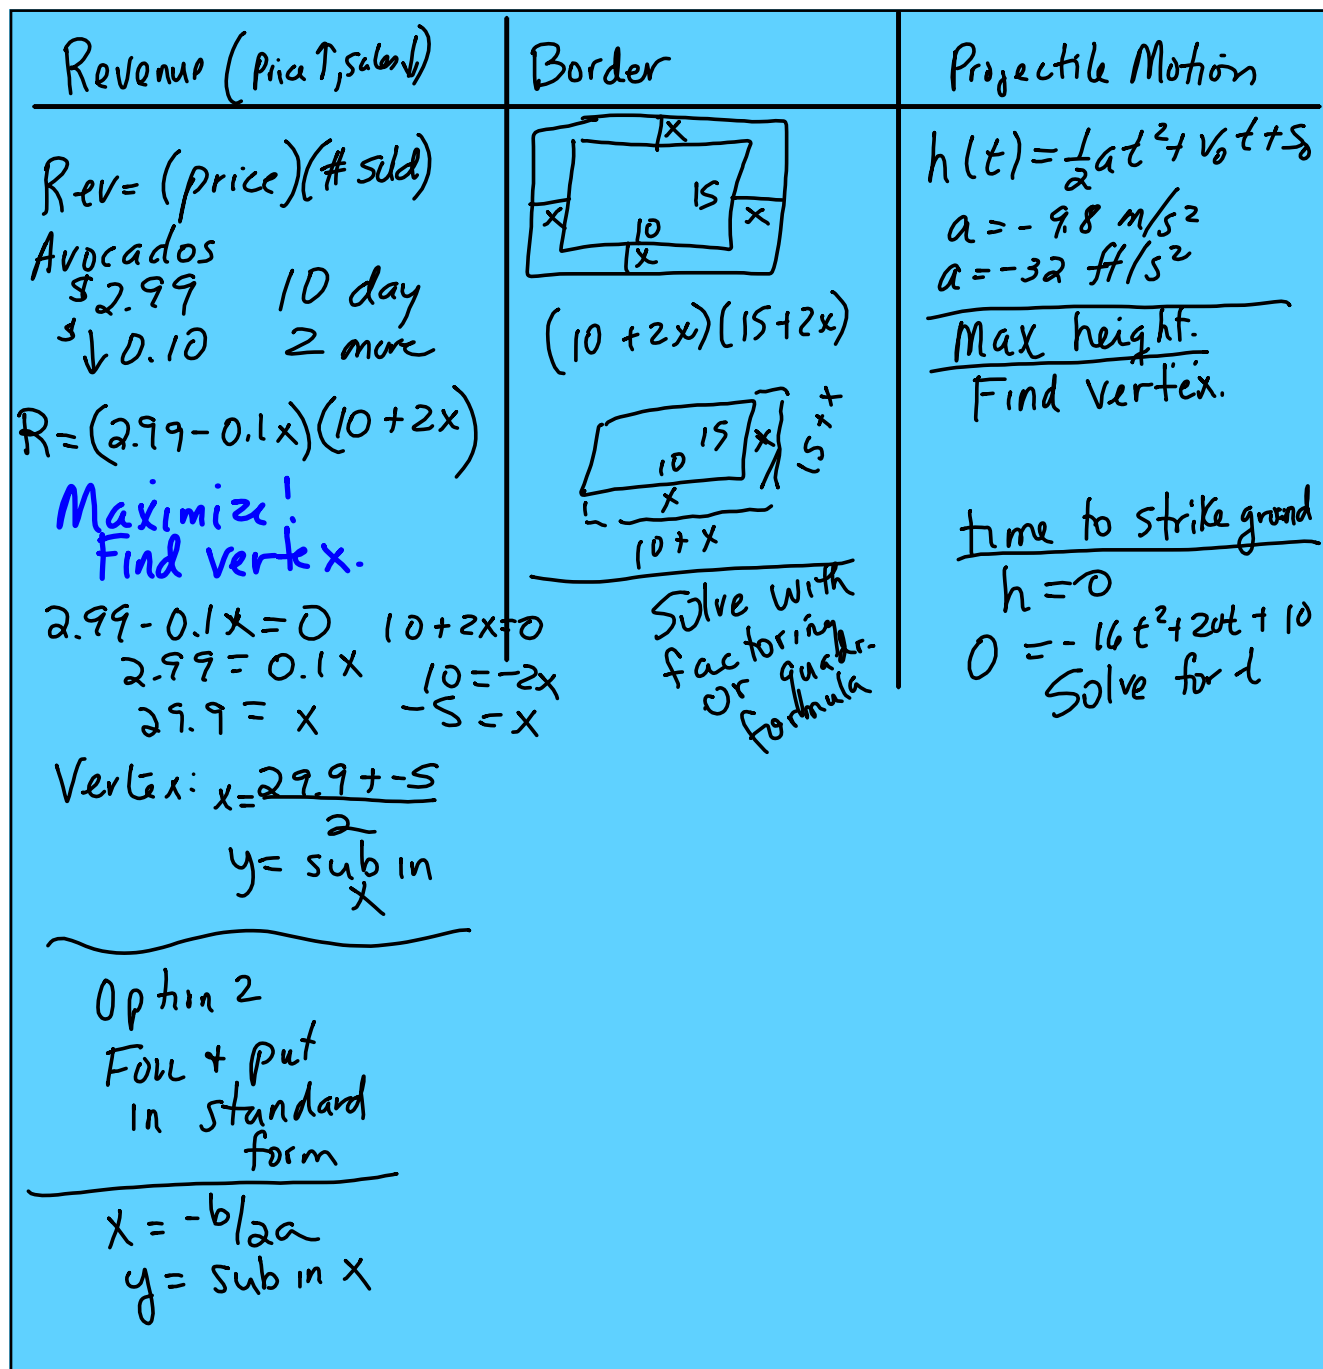 Revenue (price ↑, sales ↓)
Rev = (price)(# sold)
Avocados
$2.99 10 day
$↓0.10 2 more
R = (2.99 - 0.1x)(10 + 2x)
Maximize!
Find vertex.
2.99 - 0.1x = 0 10 + 2x = 0
2.99 = 0.1x 10 = -2x
29.9 = x -5 = x
Vertex: x = (29.9 + -5)/2
y = sub in
x
Option 2
FOIL + put
in standard
form
x = -b/2a
y = sub in x
Border
x
x 15 x
10
x
(10 + 2x)(15 + 2x)
15 x 15 + x
10
x
10 + x
Solve with
factoring
or quadr.
formula
Projectile Motion
h(t) = 1/2 at² + v₀t + s₀
a = -9.8 m/s²
a = -32 ft/s²
Max height.
Find vertex.
time to strike ground
h = 0
0 = -16t² + 20t + 10
Solve for t